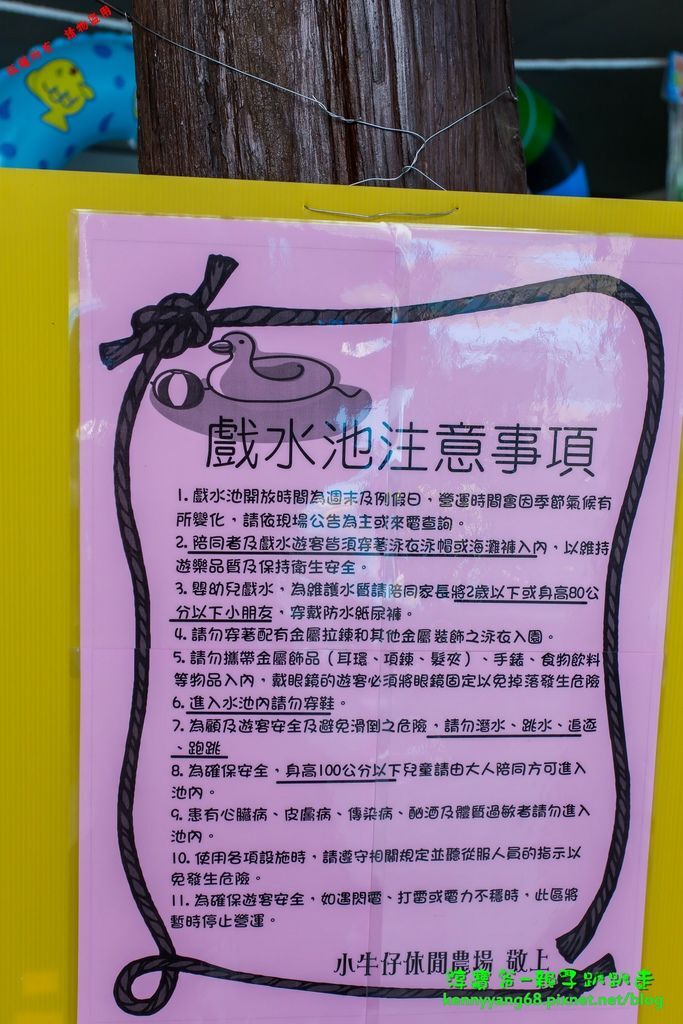 戲水池注意事項
1. 戲水池開放時間為週末及例假日，營運時間會因季節氣候有
所變化，請依現場公告為主或來電查詢。
2. 陪同者及戲水遊客皆須穿著泳衣泳帽或海灘褲入內，以維持
遊樂品質及保持衛生安全。
3. 嬰幼兒戲水，為維護水質請陪同家長將2歲以下或身高80公
分以下小朋友，穿戴防水紙尿褲。
4. 請勿穿著配有金屬拉鍊和其他金屬裝飾之泳衣入園。
5. 請勿攜帶金屬飾品（耳環、項鍊、髮夾）、手錶、食物飲料
等物品入內，戴眼鏡的遊客必須將眼鏡固定以免掉落發生危險
6. 進入水池內請勿穿鞋。
7. 為顧及遊客安全及避免滑倒之危險，請勿潛水、跳水、追逐
、跑跳
8. 為確保安全，身高100公分以下兒童請由大人陪同方可進入
池內。
9. 患有心臟病、皮膚病、傳染病、酗酒及體質過敏者請勿進入
池內。
10. 使用各項設施時，請遵守相關規定並聽從服人員的指示以
免發生危險。
11. 為確保遊客安全，如遇閃電、打雷或電力不穩時，此區將
暫時停止營運。
小牛仔休閒農場 敬上
kennyyang68.pixnet.net/blog